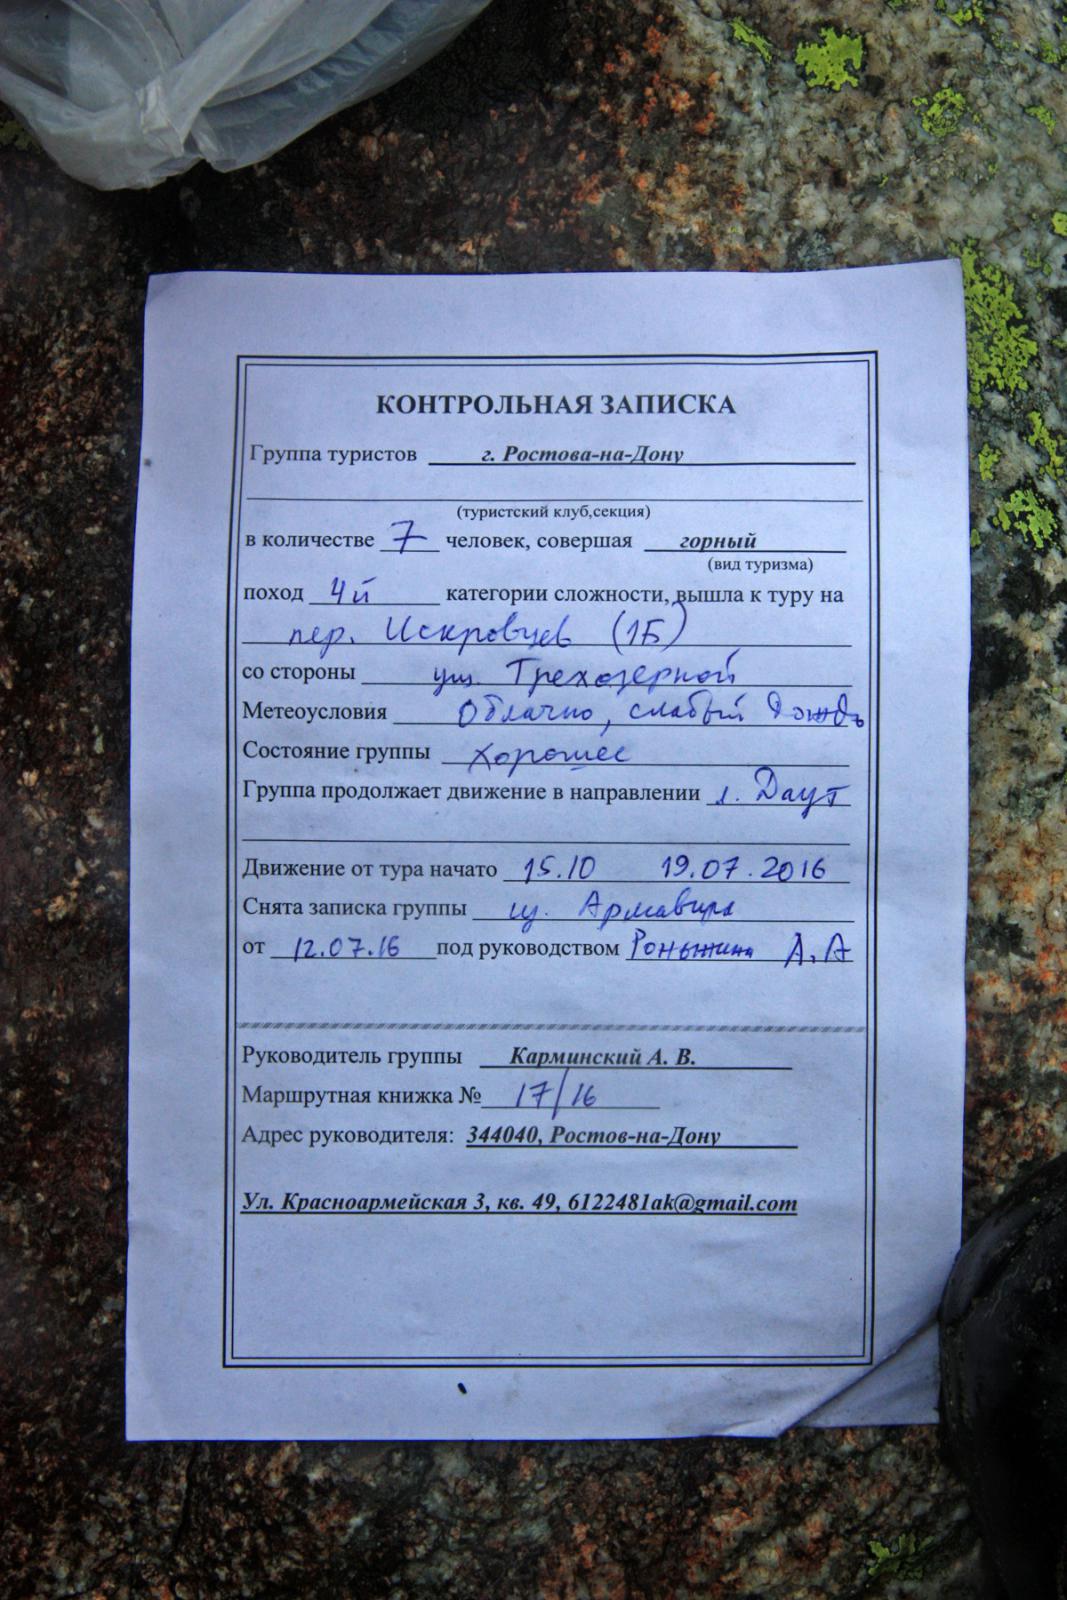 КОНТРОЛЬНАЯ ЗАПИСКА
Группа туристов г. Ростова-на-Дону
(туристский клуб,секция)
в количестве 7 человек, совершая горный
(вид туризма)
поход 4й категории сложности, вышла к туру на
пер. Искровцев (1Б)
со стороны ущ. Трехозерной
Метеоусловия Облачно, слабый дождь
Состояние группы хорошее
Группа продолжает движение в направлении л. Даут
Движение от тура начато 15.10 19.07.2016
Снята записка группы из. Армавира
от 12.07.16 под руководством Роньжина А.А
Руководитель группы Карминский А. В.
Маршрутная книжка № 17/16
Адрес руководителя: 344040, Ростов-на-Дону
Ул. Красноармейская 3, кв. 49, 6122481ak@gmail.com